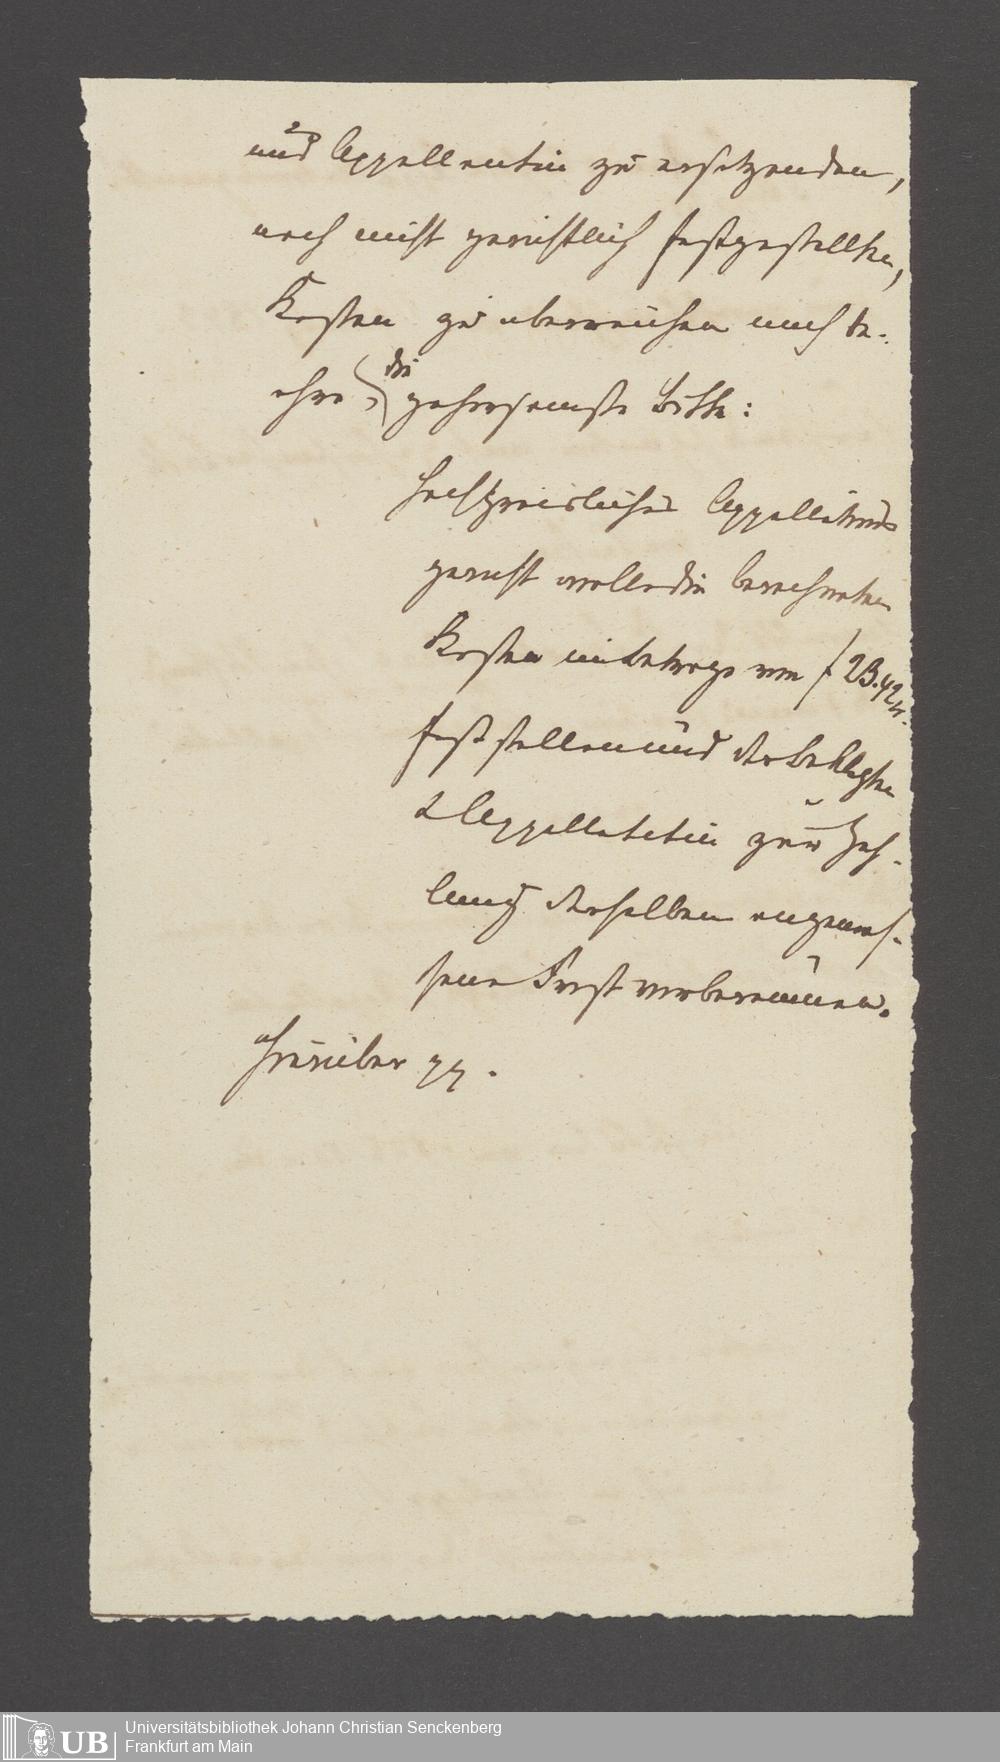 und Appellantin zu ersetzenden,
noch nicht gerichtlich festgestellten,
Kosten zu überreichen nebst
die
gehorsamste Bitte:
Hochpreisliches Appellations
gericht wolle die berechneten
Kosten im Betrage von f 23.42 kr.
feststellen und der Beklagten
& Appellatin zur Zah-
lung derselben angemes-
sene Frist vorberaumen.
Hierüber pp.
Universitätsbibliothek Johann Christian Senckenberg
Frankfurt am Main
UB